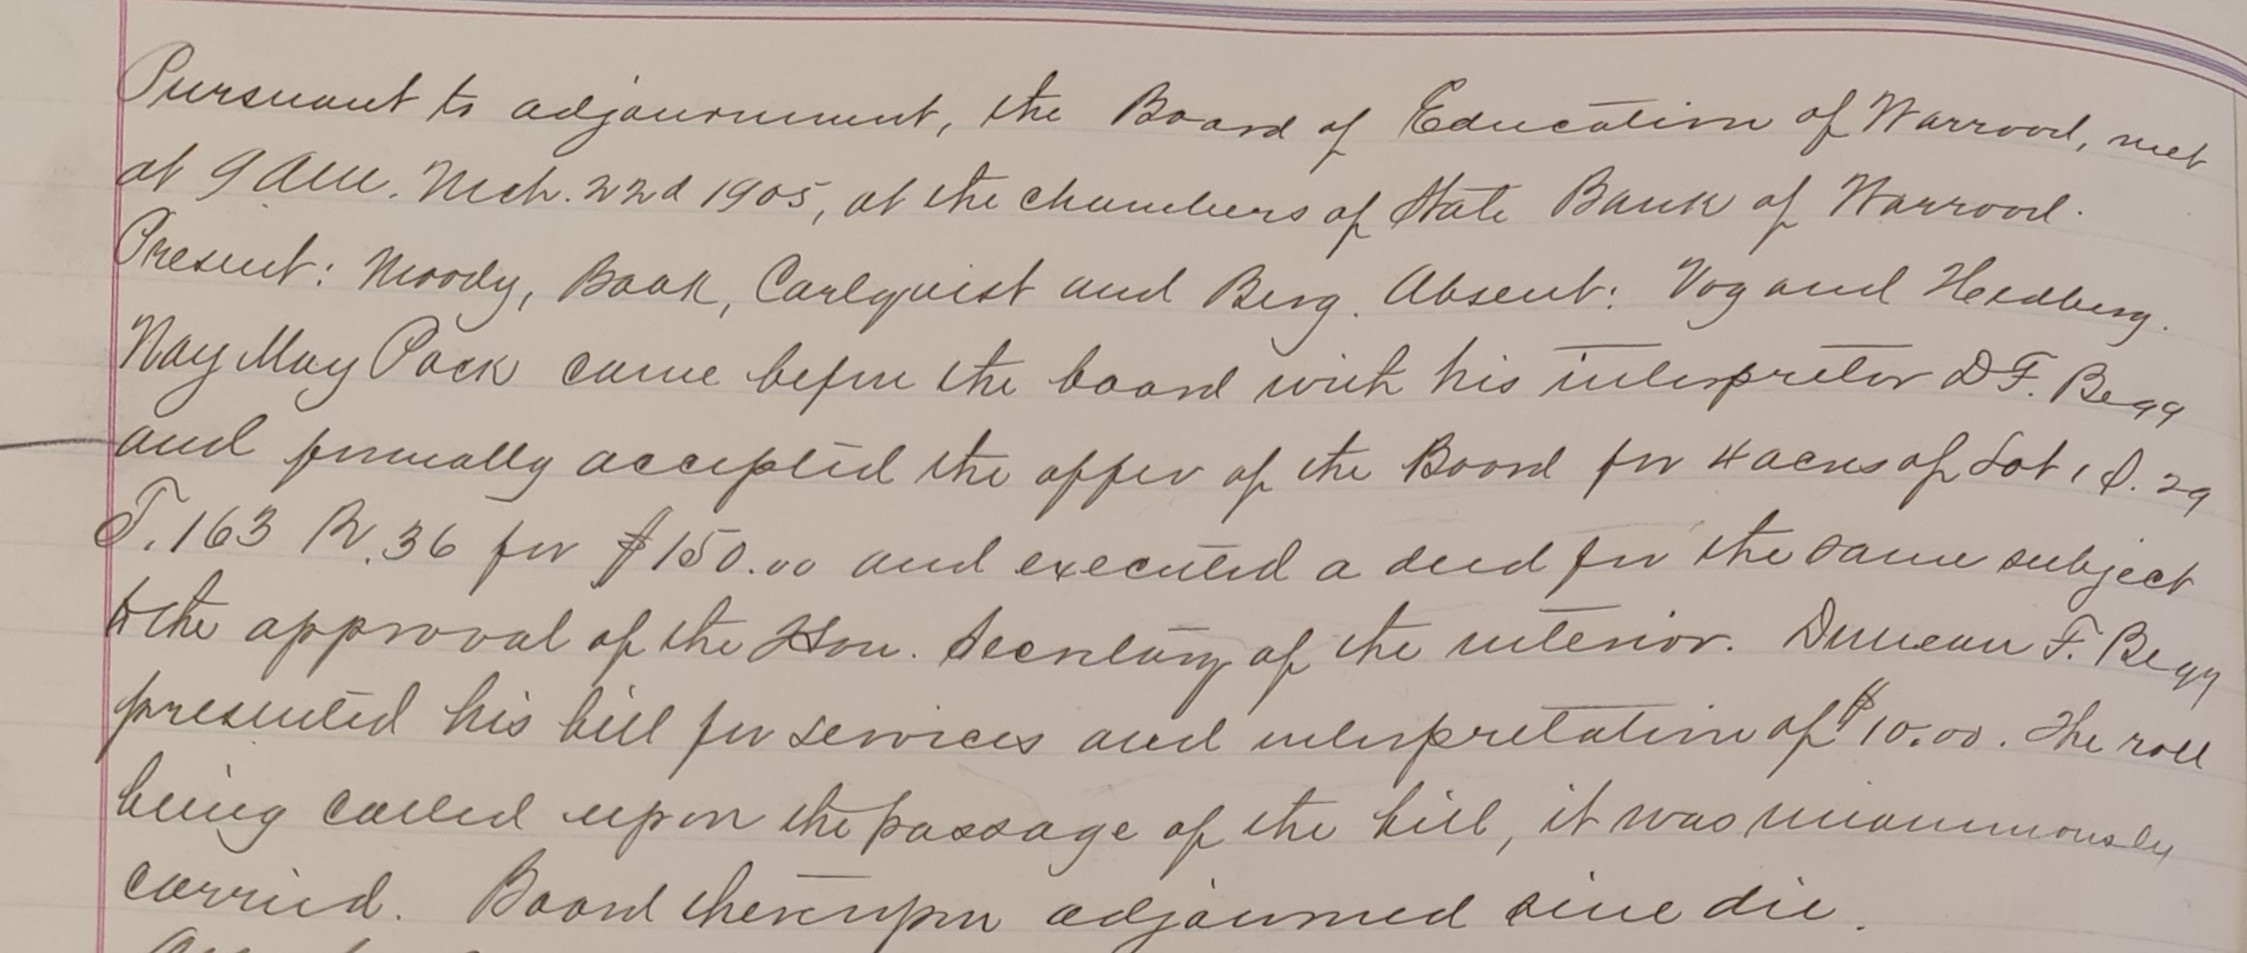 Pursuant to adjournment, the Board of Education of Warroad, met
at 9 am. Mch. 22d 1905, at the chambers of State Bank of Warroad.
Present: Moody, Baak, Carlquist and Berg. Absent: Vog and Hedberg.
Nay May Pock came before the board with his interpreter D F. Begg
and formally accepted the offer of the Board for 4 acres of Lot 1 S. 29
T. 163 R. 36 for $150.00 and executed a deed for the same subject
to the approval of the Hon. Secretary of the interior. Duncan F. Begg
presented his bill for services and interpretation of $10.00. The roll
being called upon the passage of the bill, it was unanimously
carried. Board thereupon adjourned sine die.